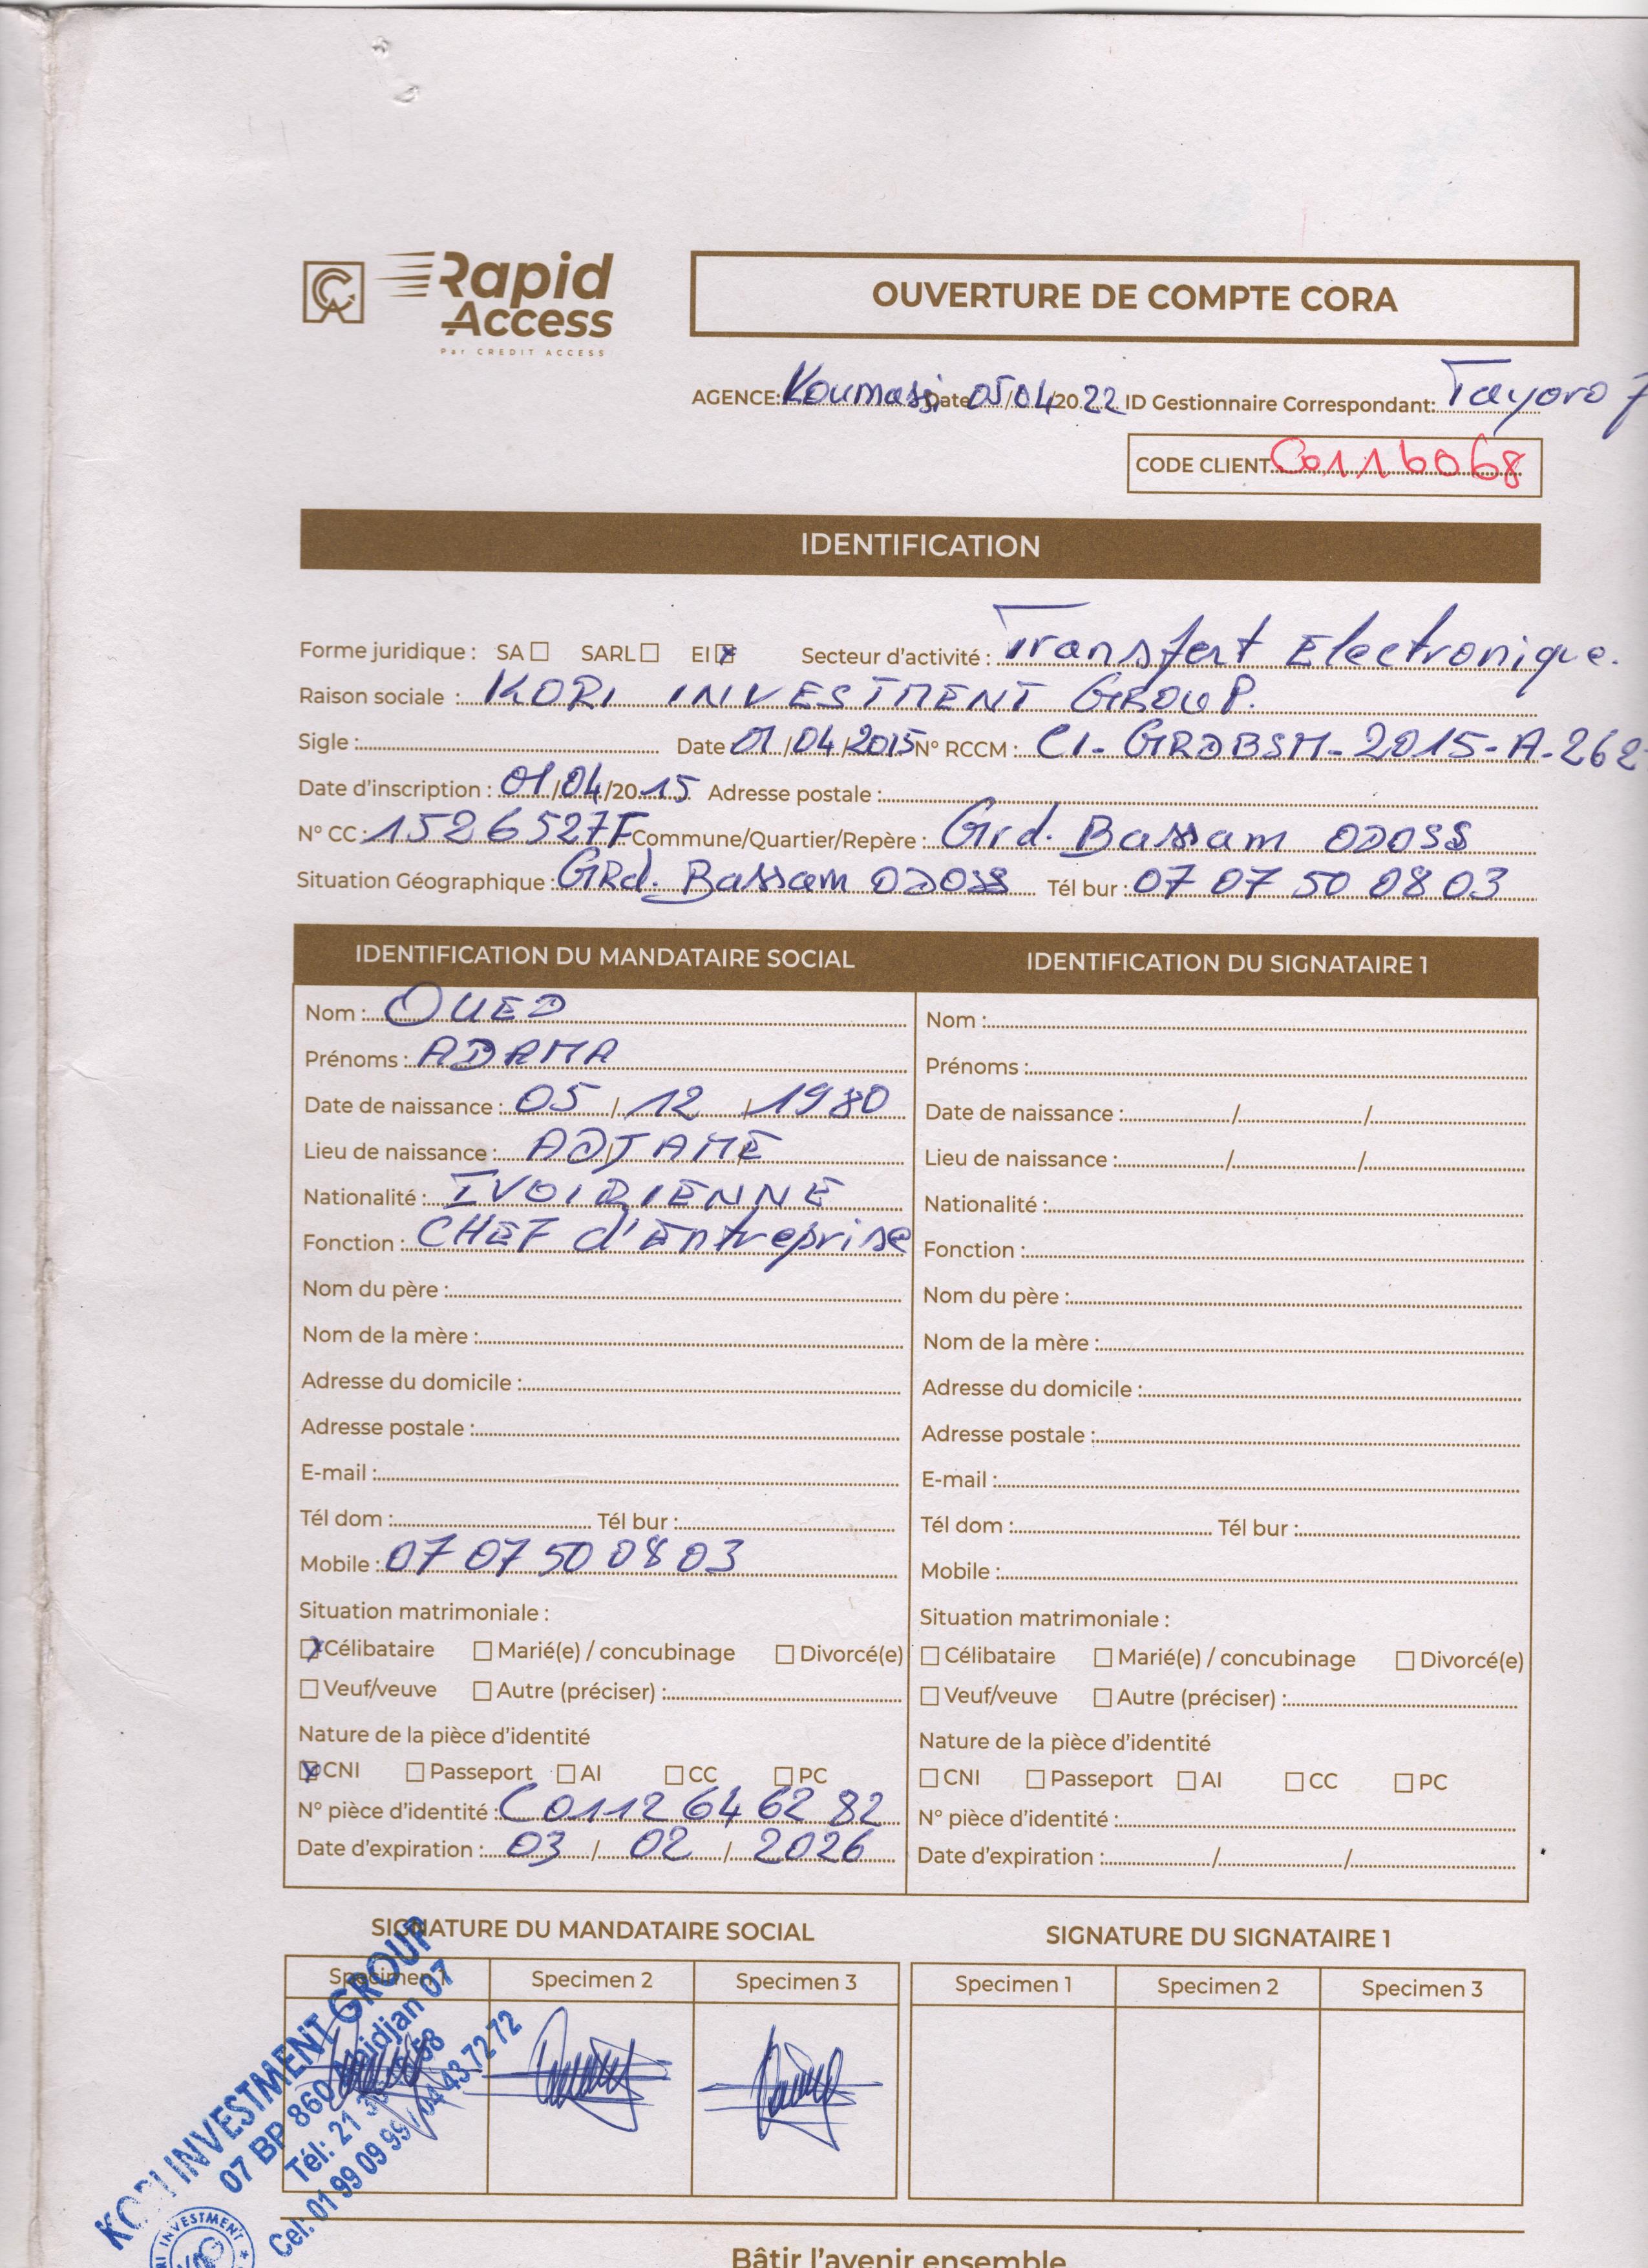 CA Rapid Access
Par CREDIT ACCESS
OUVERTURE DE COMPTE CORA
AGENCE: Koumassi Date 05/04/2022 ID Gestionnaire Correspondant: Tayoro 7
CODE CLIENT C0116068
IDENTIFICATION
Forme juridique : SA SARL EI Secteur d'activité : Transfert Electronique.
Raison sociale : KORI INVESTMENT GROUP.
Sigle : Date 01/04/2015 N° RCCM : CI-GRDBSM-2015-A-262
Date d'inscription : 01/04/2015 Adresse postale :
N° CC : 1526527F Commune/Quartier/Repère : Grd. Bassam ODOSS
Situation Géographique : GRd. Bassam ODOSS Tél bur : 07 07 50 08 03
IDENTIFICATION DU MANDATAIRE SOCIAL
Nom : OUED
Prénoms : ADAMA
Date de naissance : 05 / 12 / 1980
Lieu de naissance : ADJAMÉ
Nationalité : IVOIRIENNE
Fonction : CHEF d'Entreprise
Nom du père :
Nom de la mère :
Adresse du domicile :
Adresse postale :
E-mail :
Tél dom : Tél bur :
Mobile : 07 07 50 08 03
Situation matrimoniale :
Célibataire Marié(e) / concubinage Divorcé(e)
Veuf/veuve Autre (préciser) :
Nature de la pièce d'identité
CNI Passeport AI CC PC
N° pièce d'identité : C 0112 64 62 82
Date d'expiration : 03 / 02 / 2026
IDENTIFICATION DU SIGNATAIRE 1
Nom :
Prénoms :
Date de naissance : / /
Lieu de naissance : / /
Nationalité :
Fonction :
Nom du père :
Nom de la mère :
Adresse du domicile :
Adresse postale :
E-mail :
Tél dom : Tél bur :
Mobile :
Situation matrimoniale :
Célibataire Marié(e) / concubinage Divorcé(e)
Veuf/veuve Autre (préciser) :
Nature de la pièce d'identité
CNI Passeport AI CC PC
N° pièce d'identité :
Date d'expiration : / /
SIGNATURE DU MANDATAIRE SOCIAL
Specimen 1 Specimen 2 Specimen 3
SIGNATURE DU SIGNATAIRE 1
Specimen 1 Specimen 2 Specimen 3
KORI INVESTMENT GROUP
07 BP 860 Abidjan 07
Tél: 21
Cel: 01 99 09 99 / 04 43 72 72
INVESTMENT
Bâtir l'avenir ensemble